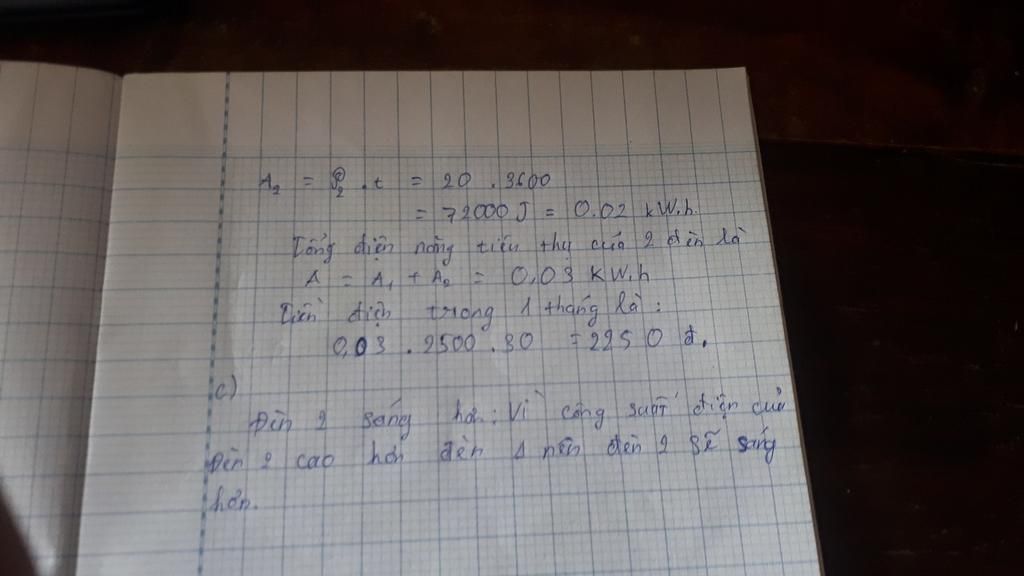 A₂ = 𝒫₂ . t = 20 . 3600
= 72000 J = 0.02 kW.h
Tổng điện năng tiêu thụ của 2 đèn là
A = A₁ + A₂ = 0,03 kW.h
Tiền điện trong 1 tháng là:
0,03 . 2500 . 30 = 2250 đ.
c)
Đèn 2 sáng hơn: Vì công suất điện của
Đèn 2 cao hơn đèn 1 nên đèn 2 sẽ sáng
hơn.